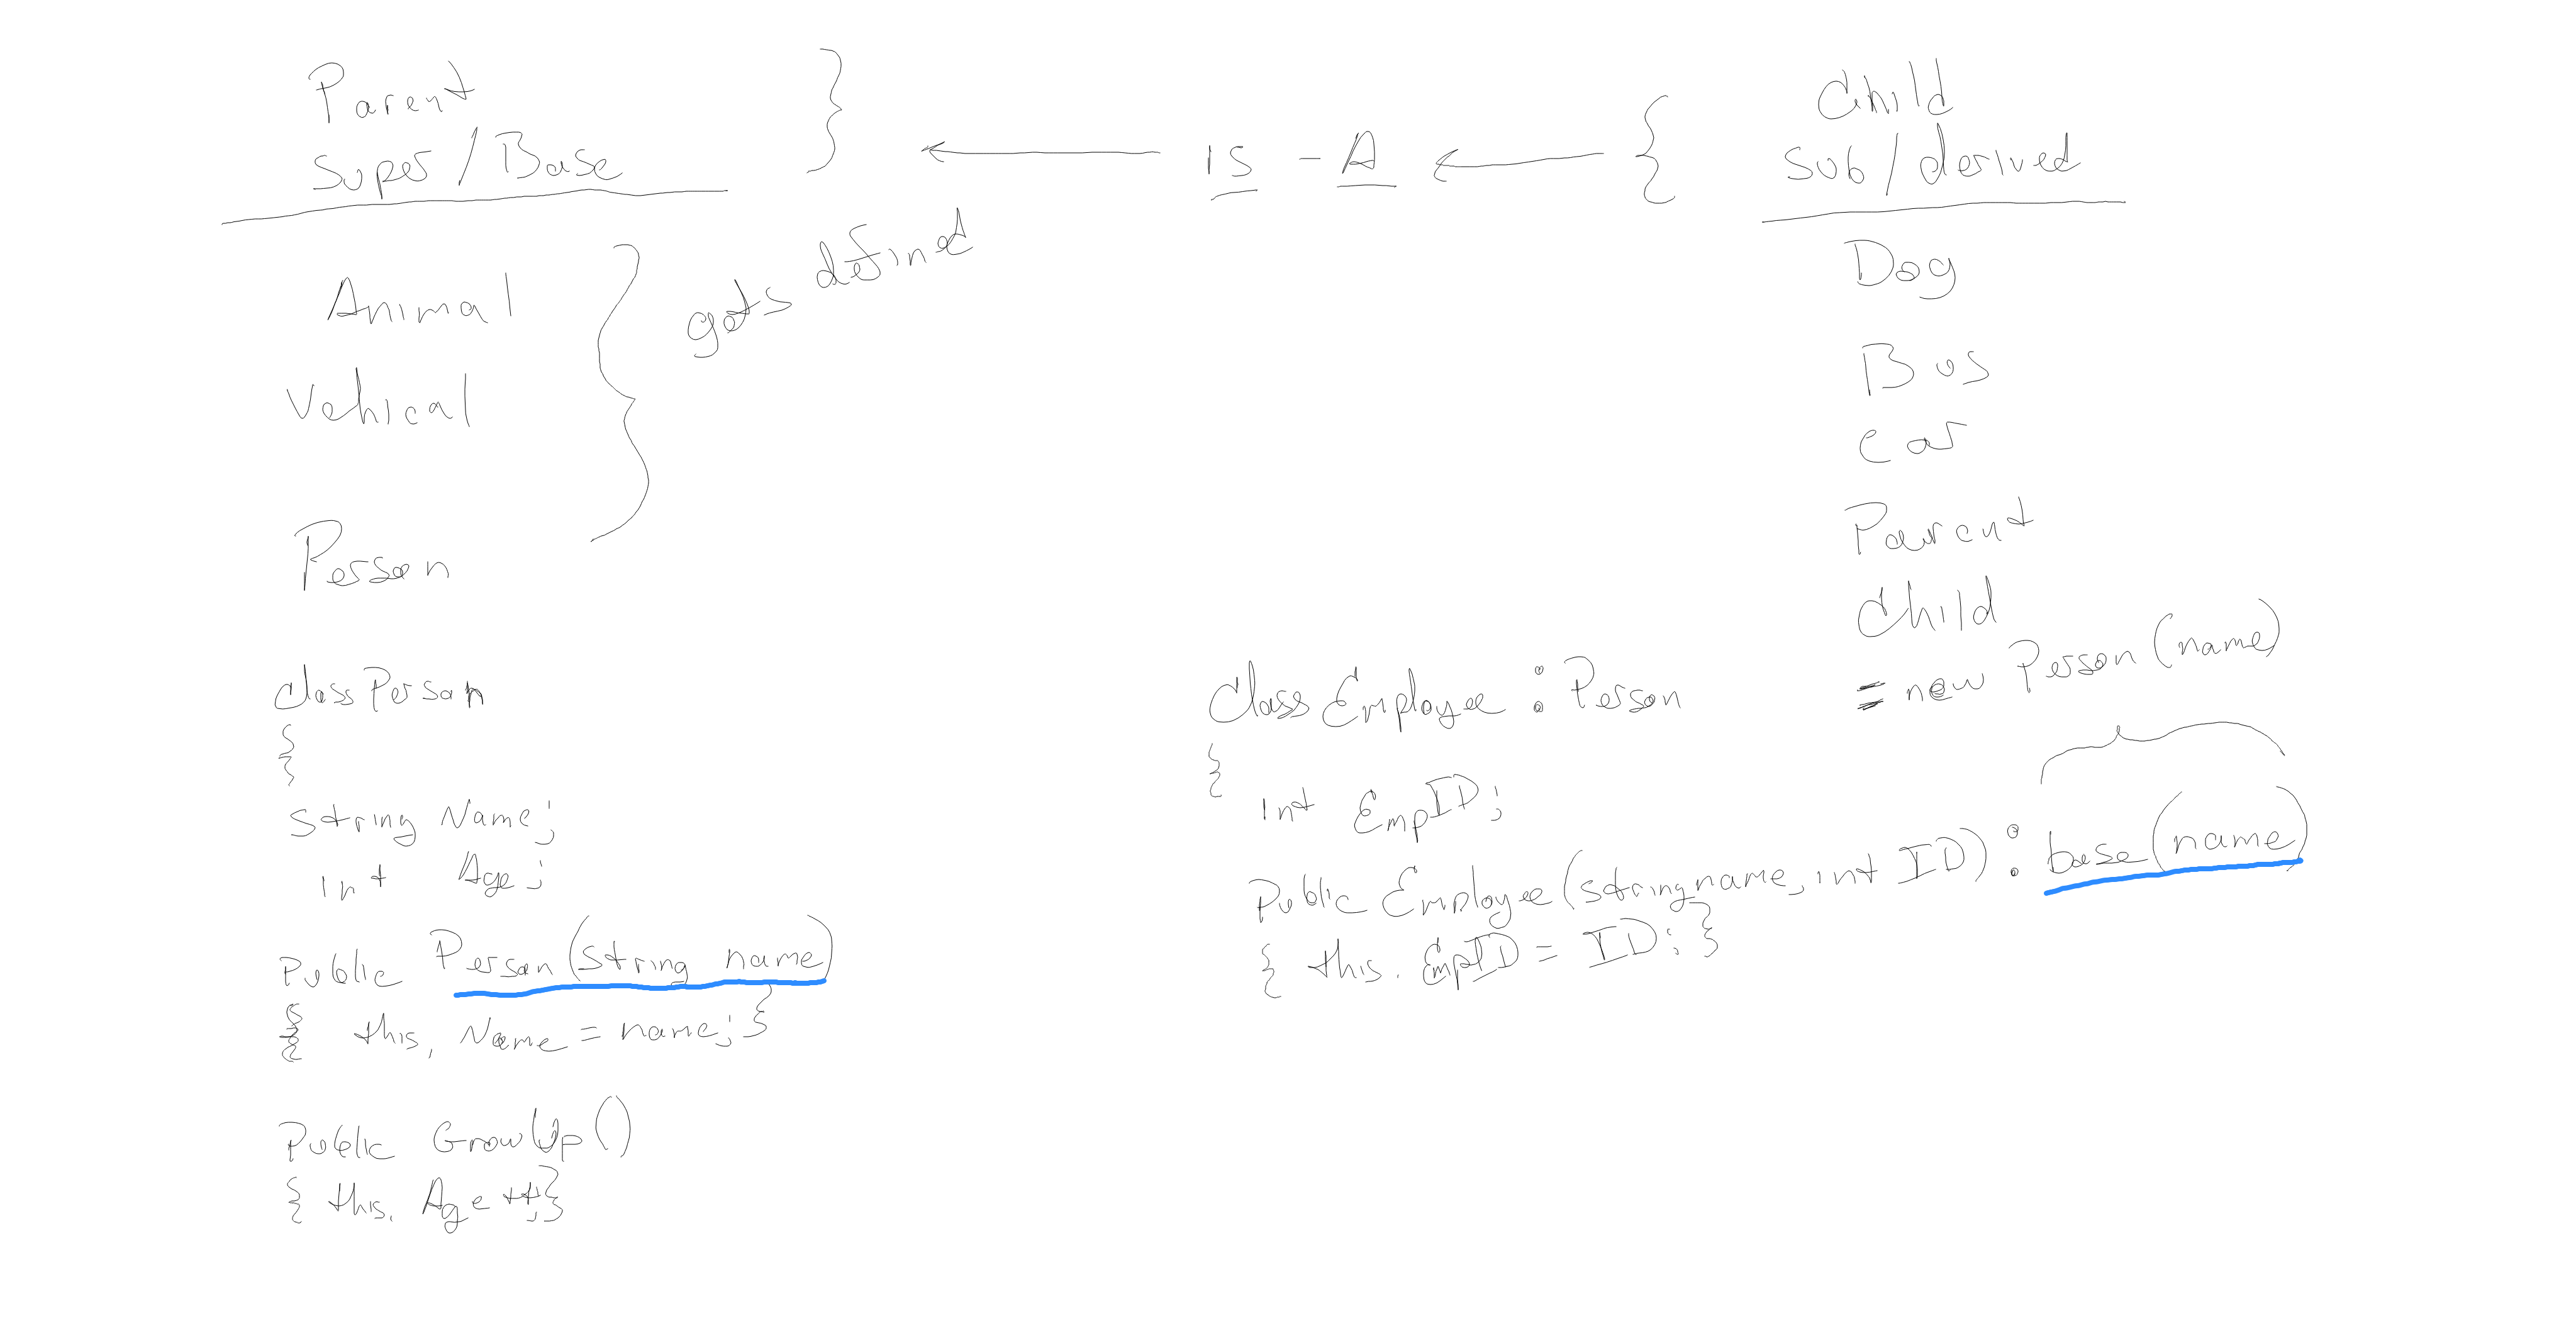 Parent
super/Base
}
is - A
{
Child
sub/derived
Animal
Vehical
Person
}
gets defined
Dog
Bus
Car
Parent
Child
class Person
{
string Name;
int Age;
Public Person(string name)
{ this. Name = name; }
Public GrowUp()
{ this. Age ++; }
Class Employee : Person
{
int EmpID;
Public Employee(string name, int ID) : base(name)
{ this. EmpID = ID; }
= new Person(name)